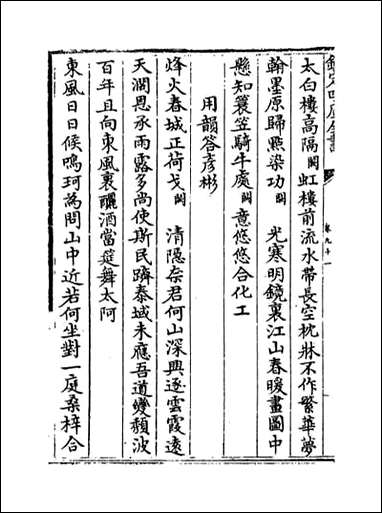 欽定四庫全書
太白樓高隔闕虹樓前流水帶長空枕牀不作繁華夢
翰墨原歸㸃染功闕 光寒明鏡裏江山春暖畫圖中
懸知簑笠騎牛處闕意悠悠合化工
用韻答彥彬
烽火春城正荷戈闕 清隱奈君何山深興逐雲霞遠
天濶恩承雨露多尚使斯民躋泰域未應吾道變頽波
百年且向東風裏釃酒當筵舞太阿
東風日日候鳴珂為問山中近若何坐對一庭桑梓合